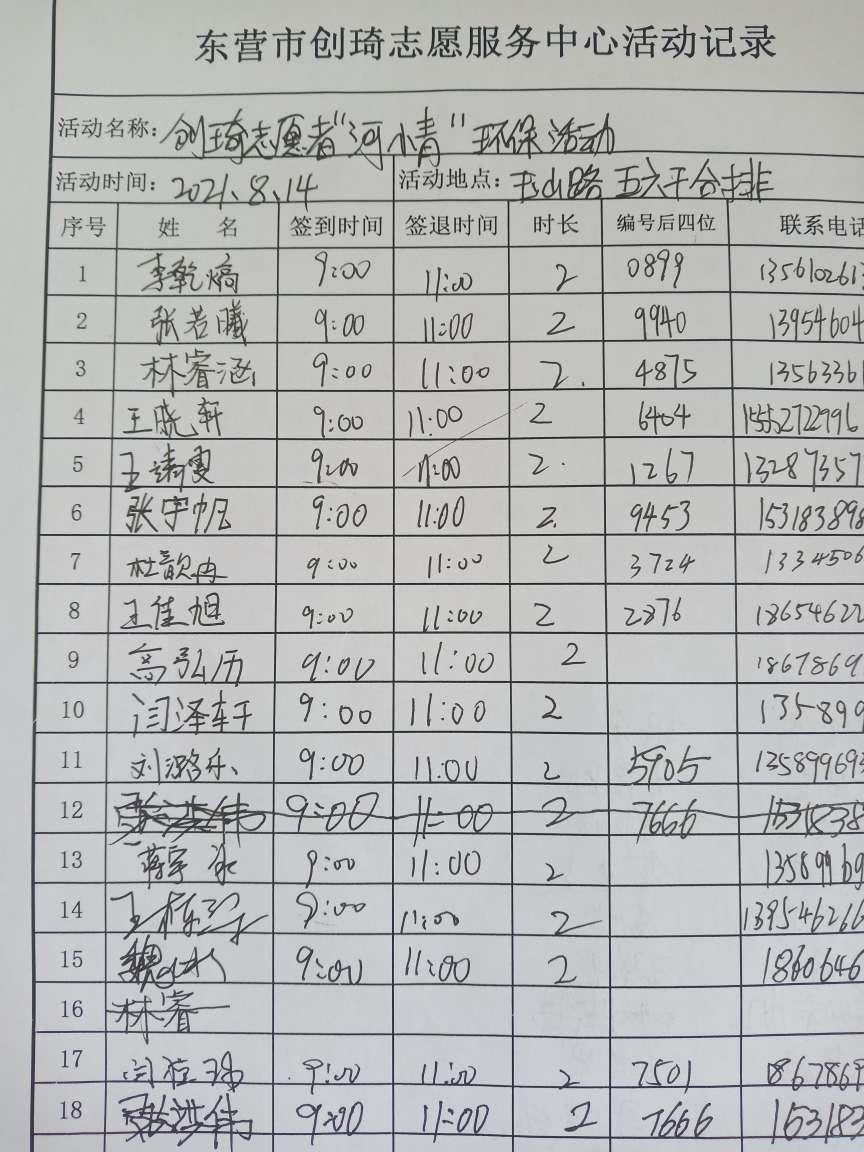 东营市创琦志愿服务中心活动记录
活动名称：创琦志愿者"河小青"环保活动
活动时间：2021.8.14 活动地点：玉山路 五六干合排
序号 姓 名 签到时间 签退时间 时长 编号后四位 联系电话
1 李乾熇 9:00 11:00 2 0899 1356102613
2 张若曦 9:00 11:00 2 9940 13954604
3 林睿涵 9:00 11:00 2. 4875 13563361
4 王晓轩 9:00 11:00 2 6404 15552722996
5 王靖雯 9:00 11:00 2. 1267 132873571
6 张宇帆 9:00 11:00 2. 9453 153183898
7 杜歆冉 9:00 11:00 2 3724 1334506
8 王佳旭 9:00 11:00 2 2876 18654622
9 高弘历 9:00 11:00 2 1867869
10 闫泽轩 9:00 11:00 2 135899
11 刘潞乐 9:00 11:00 2 5905 135899693
12 9:00 11:00 2 7666 1531838
13 蒋宇 9:00 11:00 2 13589969
14 王 9:00 11:00 2 139546266
15 魏 9:00 11:00 2 1860646
16 林睿
17 闫 9:00 11:00 2 7501 1867869
18 张洪伟 9:00 11:00 2 7666 153183